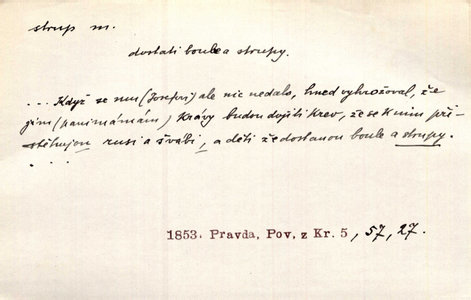 strup m.
dostati boule a strupy.
... Když se mu (Josefovi) ale nic nedalo, hned vyhrožoval, že
jim (panímámám) krávy budou dojiti krev, že se k nim při-
stěhujou rusi a švábi, a děti že dostanou boule a strupy.
....
1853. Pravda, Pov. z Kr. 5, 57, 27.